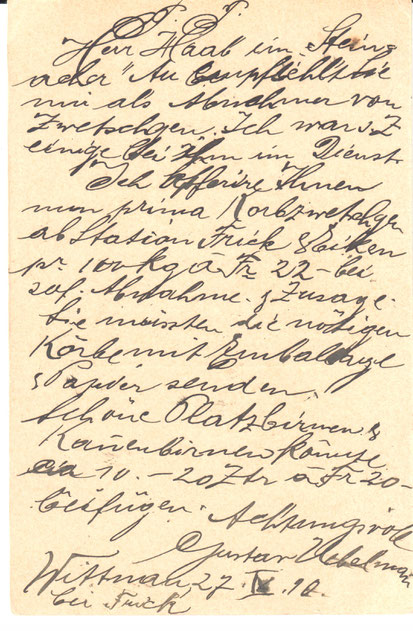 P. P.
Herr Haab im „Stein-
acker" Au empfiehlt Sie
mir als Abnehmer von
Zwetschgen. Ich war s. Z.
einige bei Ihm im Dienst
Ich Offerire Ihnen
nun prima Korbzwetschgen
ab Station Frick & Eiken
pr. 100 kg à Fr 22- bei
sof. Abnahme & Zusage.
Sie müssten die nötigen
Körbe mit Emballage
& Papier senden.
Schöne Platzbirnen &
Kannenbirnen könnte
ca 10.-20 Ztr à Fr 20-
beifügen. Achtungsvoll
Gustav
Wittnau 27.
bei Frick